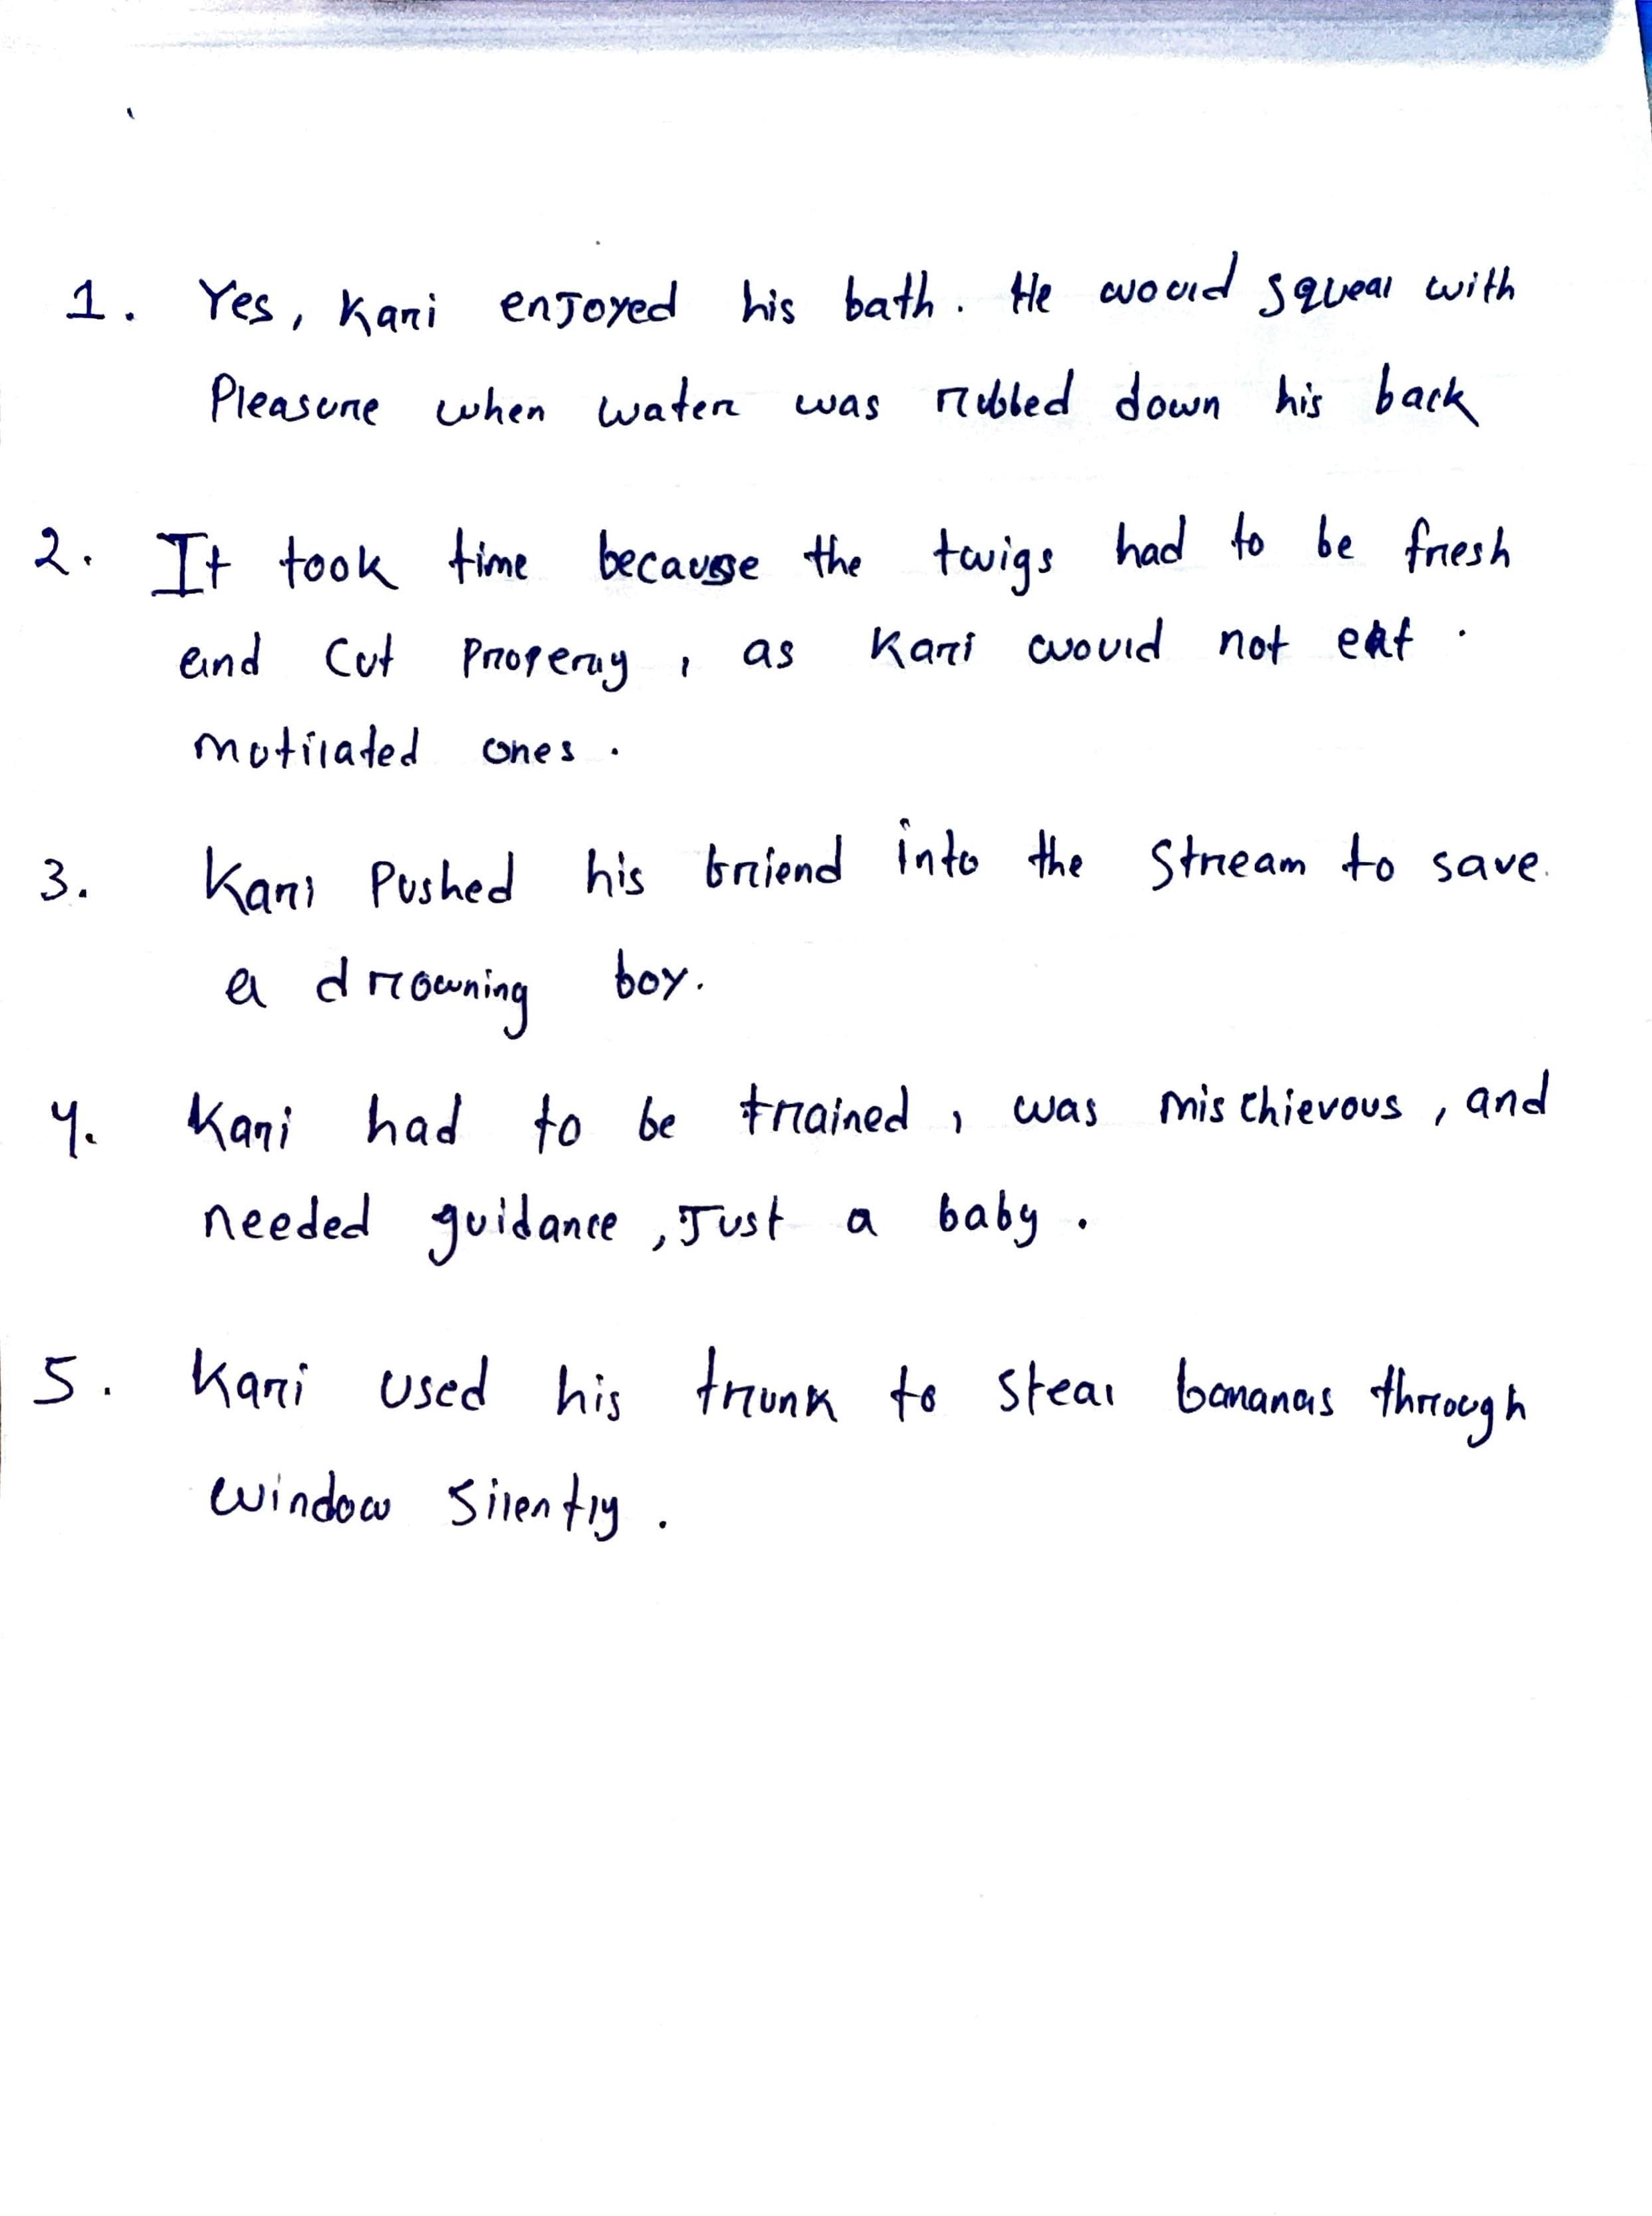 1. Yes, Kari enjoyed his bath. He would squeal with
Pleasure when water was rubbed down his back
2. It took time because the twigs had to be fresh
and cut properly, as Kari would not eat.
mutilated ones.
3. Kari pushed his friend into the stream to save.
a drowning boy.
4. Kari had to be trained, was mischievous, and
needed guidance, Just a baby.
5. Kari used his trunk to steal bananas through
window silently.